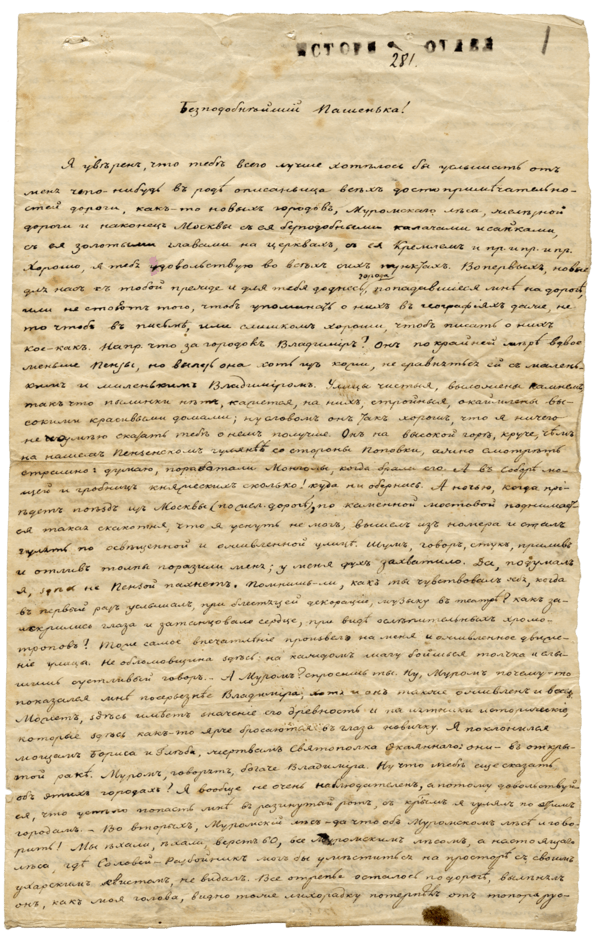 ИСТОРИ ОТДЕЛ
281.
1
Безподобнѣйшій Пашенька!
Я увѣренъ, что тебѣ всего лучше хотѣлось бы услышать отъ
меня чего-нибудь въ родѣ описаньица всѣхъ достопримѣчательно-
стей дороги, какъ-то новыхъ городовъ, Муромскаго лѣса, желѣзной
дороги и наконецъ Москвы съ ея безподобными калачами и сайками,
съ ея золотыми главами на церквахъ, съ ея Кремлемъ и пр. и пр. и пр.
Хорошо, я тебѣ удовольствую во всѣхъ сихъ пунктахъ. Во первыхъ, новые
для насъ съ тобой прежде и для тебя доднесь города, попадавшіеся мнѣ на дорогѣ,
или не стоютъ того, чтобъ упоминать о нихъ въ географіяхъ даже, не
то чтобъ въ письмѣ, или слишкомъ хороши, чтобъ писать о нихъ
кое-какъ. Напр. что за городокъ Владиміръ! Онъ по крайней мѣрѣ вдвое
меньше Пензы, но вылѣзь она хоть изъ кожи, не сравняться ей съ малень-
кимъ и миленькимъ Владиміромъ. Улицы чистыя, выложены камнемъ
такъ что пылинки нѣтъ, кажется, на нихъ, стройныя, окаймлены вы-
сокими красивыми домами; ну словомъ онъ такъ хорошъ, что я ничего
не умѣю сказать тебѣ о немъ получше. Онъ на высокой горѣ, круче, чѣмъ
на нашемъ Пензенскомъ гуляньѣ со стороны Поповки, ажно смотрѣть
страшно: думаю, поработали Монголы, когда брали его. А въ Соборѣ мо-
щей и гробницъ княжескихъ сколько! куда ни обернись. А ночью, когда прі-
ѣдетъ поѣздъ изъ Москвы (по жел. дорогѣ), по каменной мостовой поднимает-
ся такая скакотня, что я уснуть не могъ, вышелъ изъ номера и сталъ
гулять по освѣщенной и оживленной улицѣ. Шумъ, говоръ, стукъ, приливъ
и отливъ толпы поразили меня; у меня духъ захватило. Ба, подумалъ
я, здѣсь не Пензой пахнетъ. Помнишь-ли, какъ ты чувствовалъ себя, когда
въ первый разъ услышалъ, при блестящей декораціи, музыку въ театрѣ? какъ за-
искрились глаза и затанцовало сердце, при видѣ ослѣпительныхъ хромо-
троповъ? Тоже самое впечатлѣніе произвело на меня и оживленное движе-
ніе улицы. Не обломовщина здѣсь: на каждомъ шагу боишься толчка и слы-
шишь суетливый говоръ. - А Муромъ? спросишь ты. Ну, Муромъ почему-то
показался мнѣ посерьезнѣе Владиміра; хоть и онъ также оживленъ и веселъ.
Можетъ, здѣсь имѣетъ значеніе его древность и памятники историческіе,
которые здѣсь какъ-то ярче бросаются въ глаза новичку. Я поклонился
мощамъ Бориса и Глѣба, жертвамъ Святополка Окаяннаго: они - въ откры-
той ракѣ. Муромъ, говорятъ, богаче Владиміра. Ну что тебѣ еще сказать
объ этихъ городахъ? Я вообще не очень наблюдателенъ, а потому довольствуй-
ся, что успѣло попасть мнѣ въ разинутый ротъ, съ крымъ я гулялъ по этимъ
городамъ. - Во вторыхъ, Муромскій лѣсъ - да что объ Муромскомъ лѣсѣ и гово-
рить! Мы ѣхали, ѣхали, верстъ 60, все Муромскимъ лѣсомъ, а настоящаго
лѣса, гдѣ Соловей-Разбойникъ могъ бы умѣститься на просторѣ съ своимъ
ухарскимъ свистомъ, не видалъ. Все отрепье осталось по дорогѣ, вылинялъ
онъ, какъ моя голова, видно тоже лихорадку потерпѣлъ отъ топора рус-